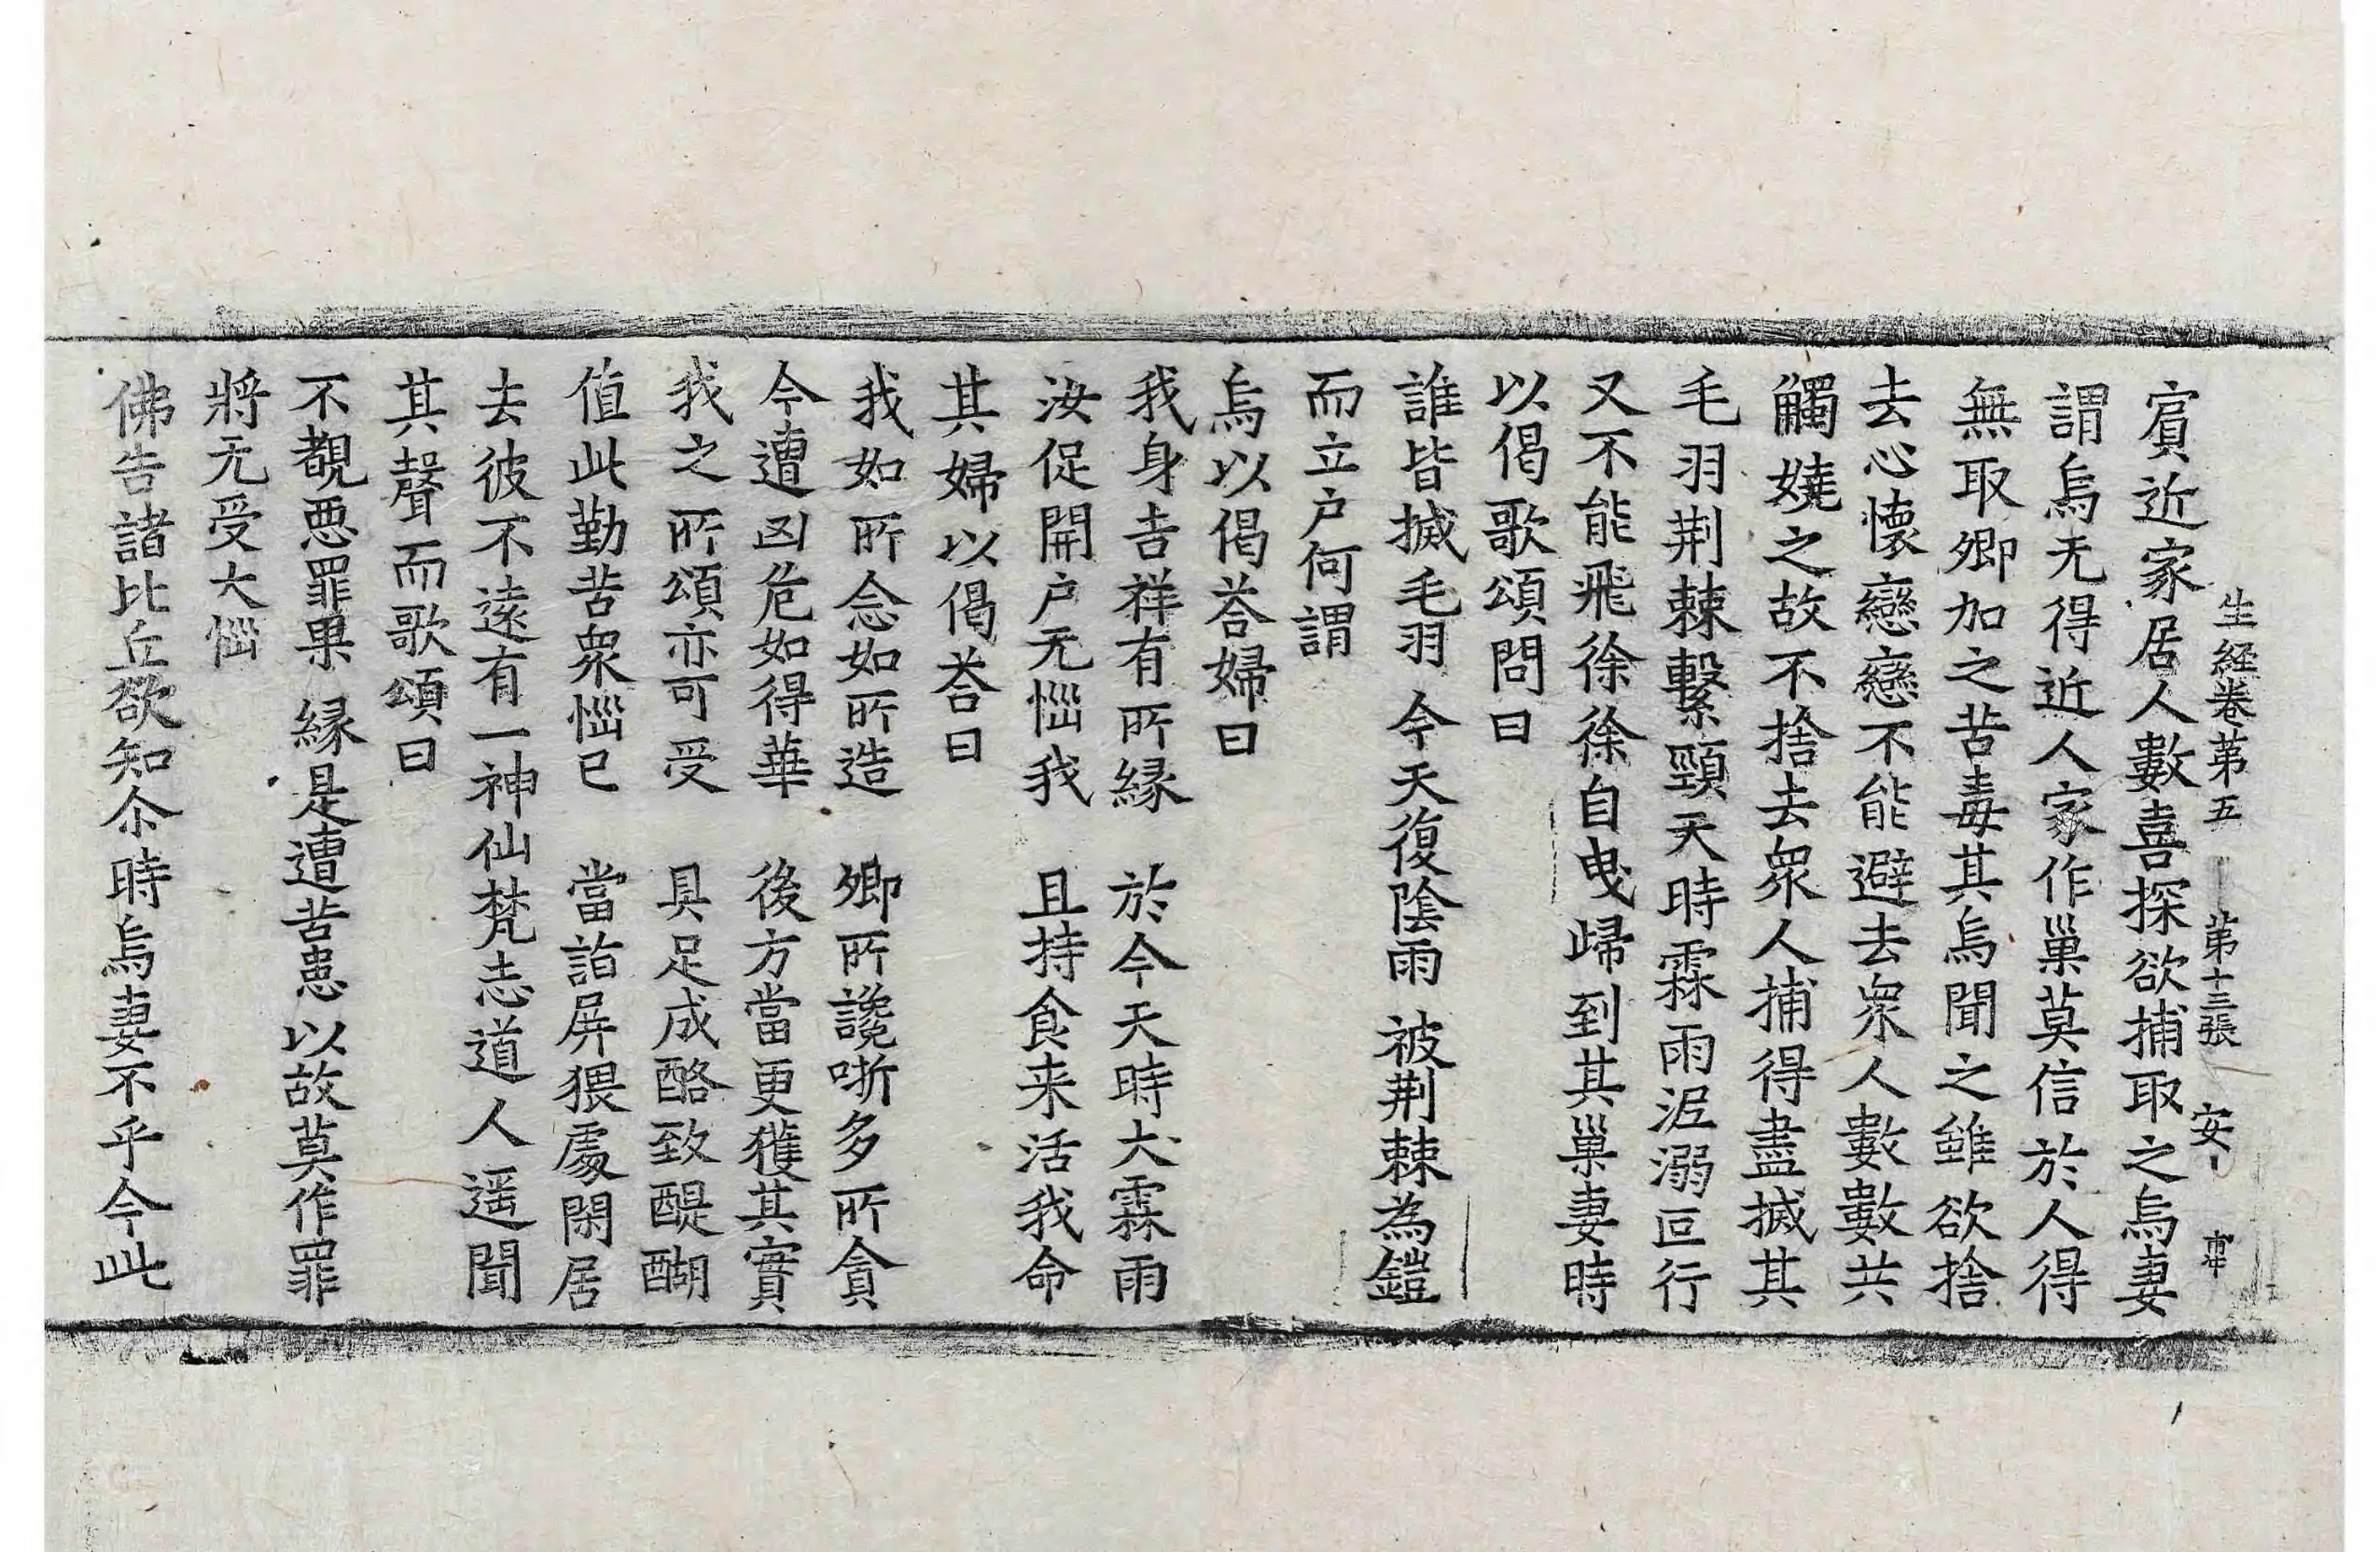 生經卷第五 第十三張 安
賔近家居人數喜探欲捕取之烏妻
謂烏无得近人家作巢莫信於人得
無取卿加之苦毒其烏聞之雖欲捨
去心懷戀戀不能避去衆人數數共
觸嬈之故不捨去衆人捕得盡搣其
毛羽荆棘繫頸天時霖雨泥溺叵行
又不能飛徐徐自曳歸到其巢妻時
以偈歌頌問曰
誰皆搣毛羽 今天復陰雨 被荆棘為鎧
而立户何謂
烏以偈荅婦曰
我身吉祥有所緣 於今天時大霖雨
汝促開户无惱我 且持食来活我命
其婦以偈荅曰
我如所念如所造 卿所讒哳多所貪
今遭凶危如得華 後方當更獲其實
我之所頌亦可受 具足成酪致醍醐
值此勤苦衆惱已 當詣屏猥處閑居
去彼不遠有一神仙梵志道人遥聞
其聲而歌頌曰
不覩惡罪果 緣是遭苦患 以故莫作罪
將无受大惱
佛告諸比丘欲知尒時烏妻不乎今此